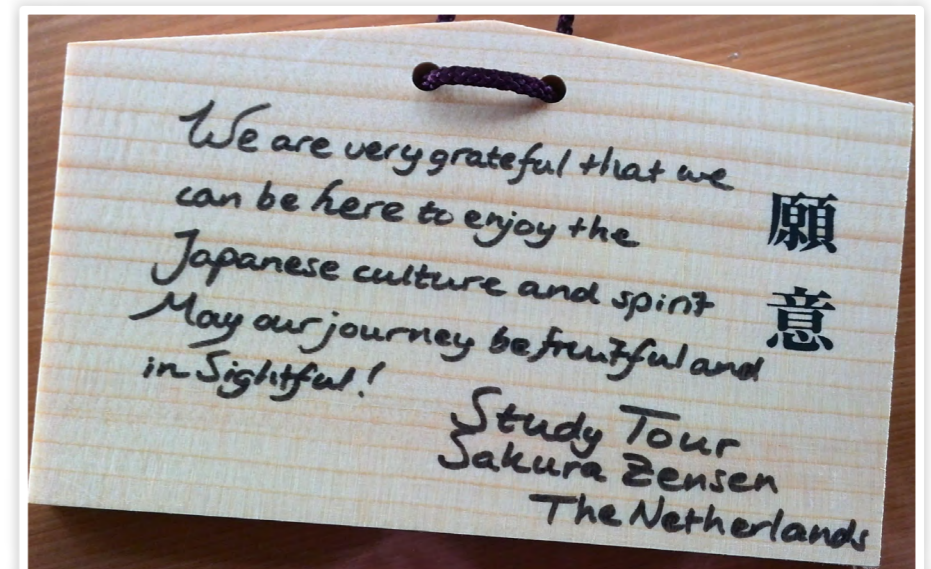 We are very grateful that we
can be here to enjoy the
Japanese culture and spirit
May our journey be fruitful and
in Sightful!
Study Tour
Sakura Zensen
The Netherlands
願意